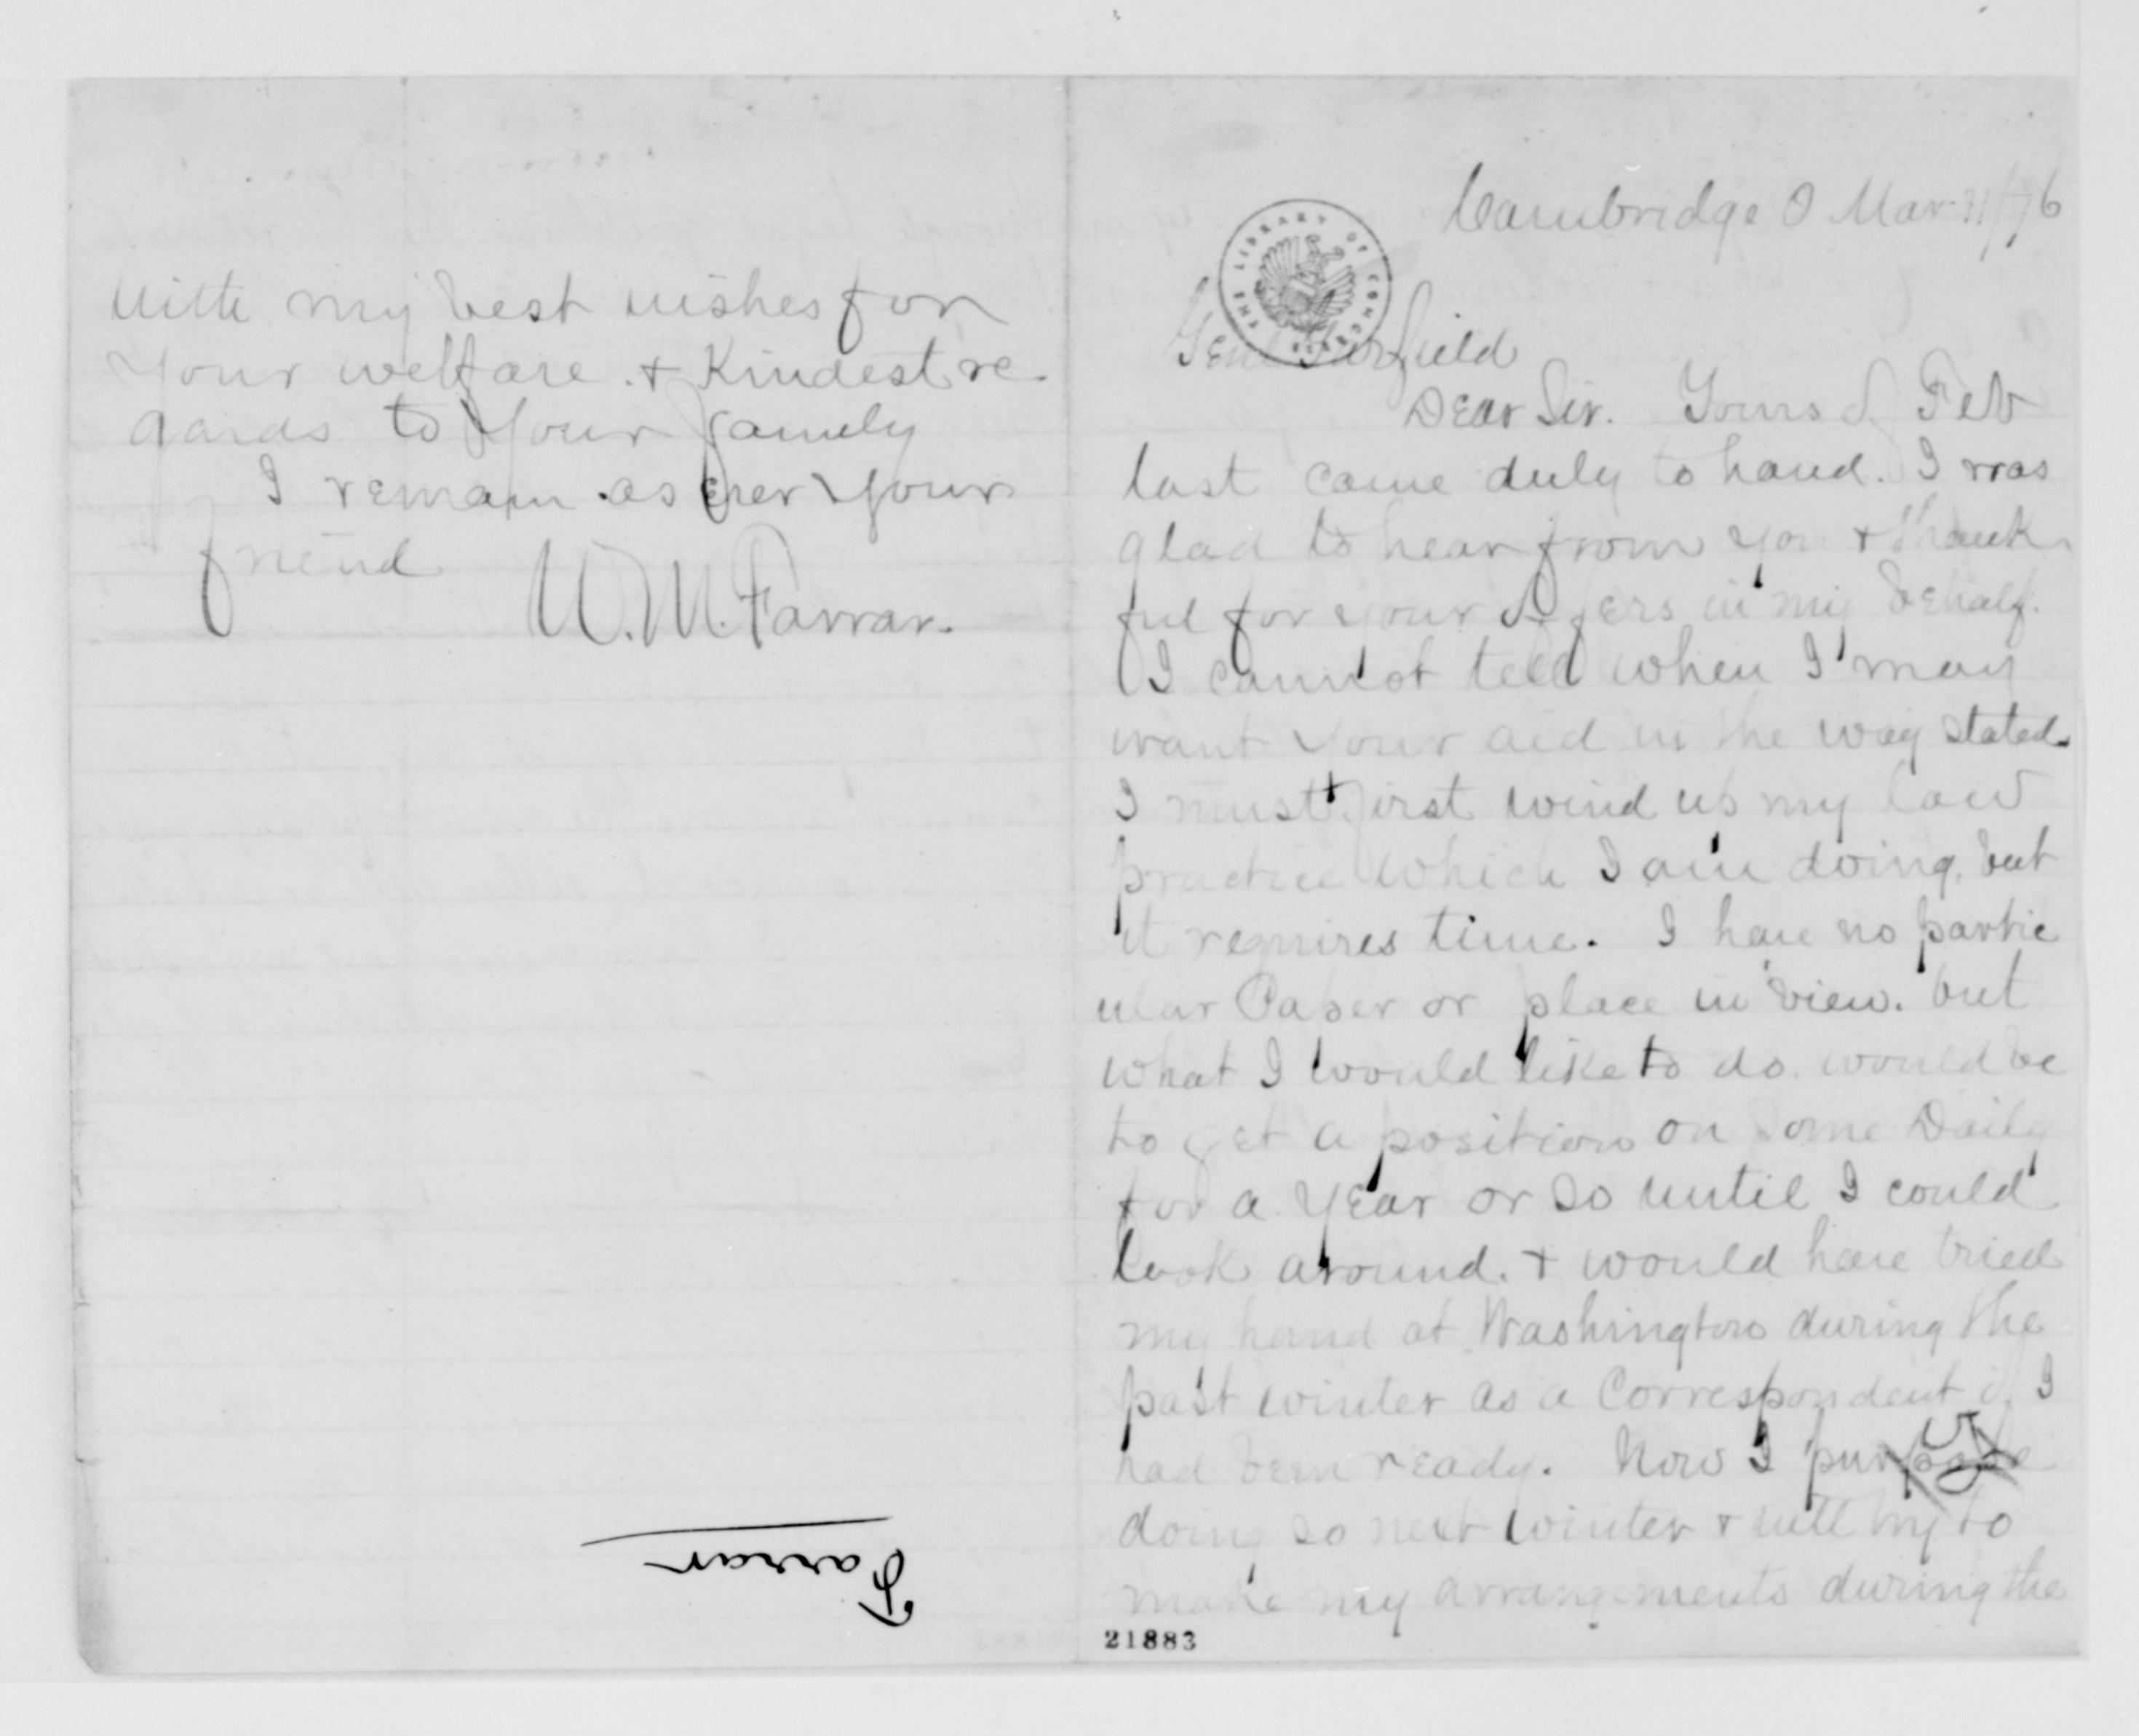 Cambridge O Mar 11/76
THE LIBRARY OF CONGRESS
Genl Garfield
Dear Sir. Yours of Feb
last came duly to hand. I was
glad to hear from you & thank
ful for your offers in my behalf.
I cannot tell when I may
want your aid in the way stated
I must first wind up my law
practice which I am doing, but
it requires time. I have no partic
ular Paper or place in view. but
what I would like to do. would be
to get a position on some Daily
for a year or so until I could
look around. & would have tried
my hand at Washington during the
past winter as a Correspondent if I
had been ready. Now I purpose
doing so next winter & will try to
make my arrangements during the
21883
With my best wishes for
your welfare. & Kindest re
gards to your family
I remain as ever your
friend W. M. Farrar.
Farrar